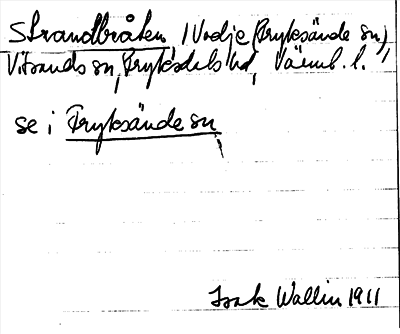 Strandbråten (Vadje (Fryksände sn)
Vitsands sn, Fryksdals hd, Värml. l.
se i Fryksände sn
Isak Wallin 1911